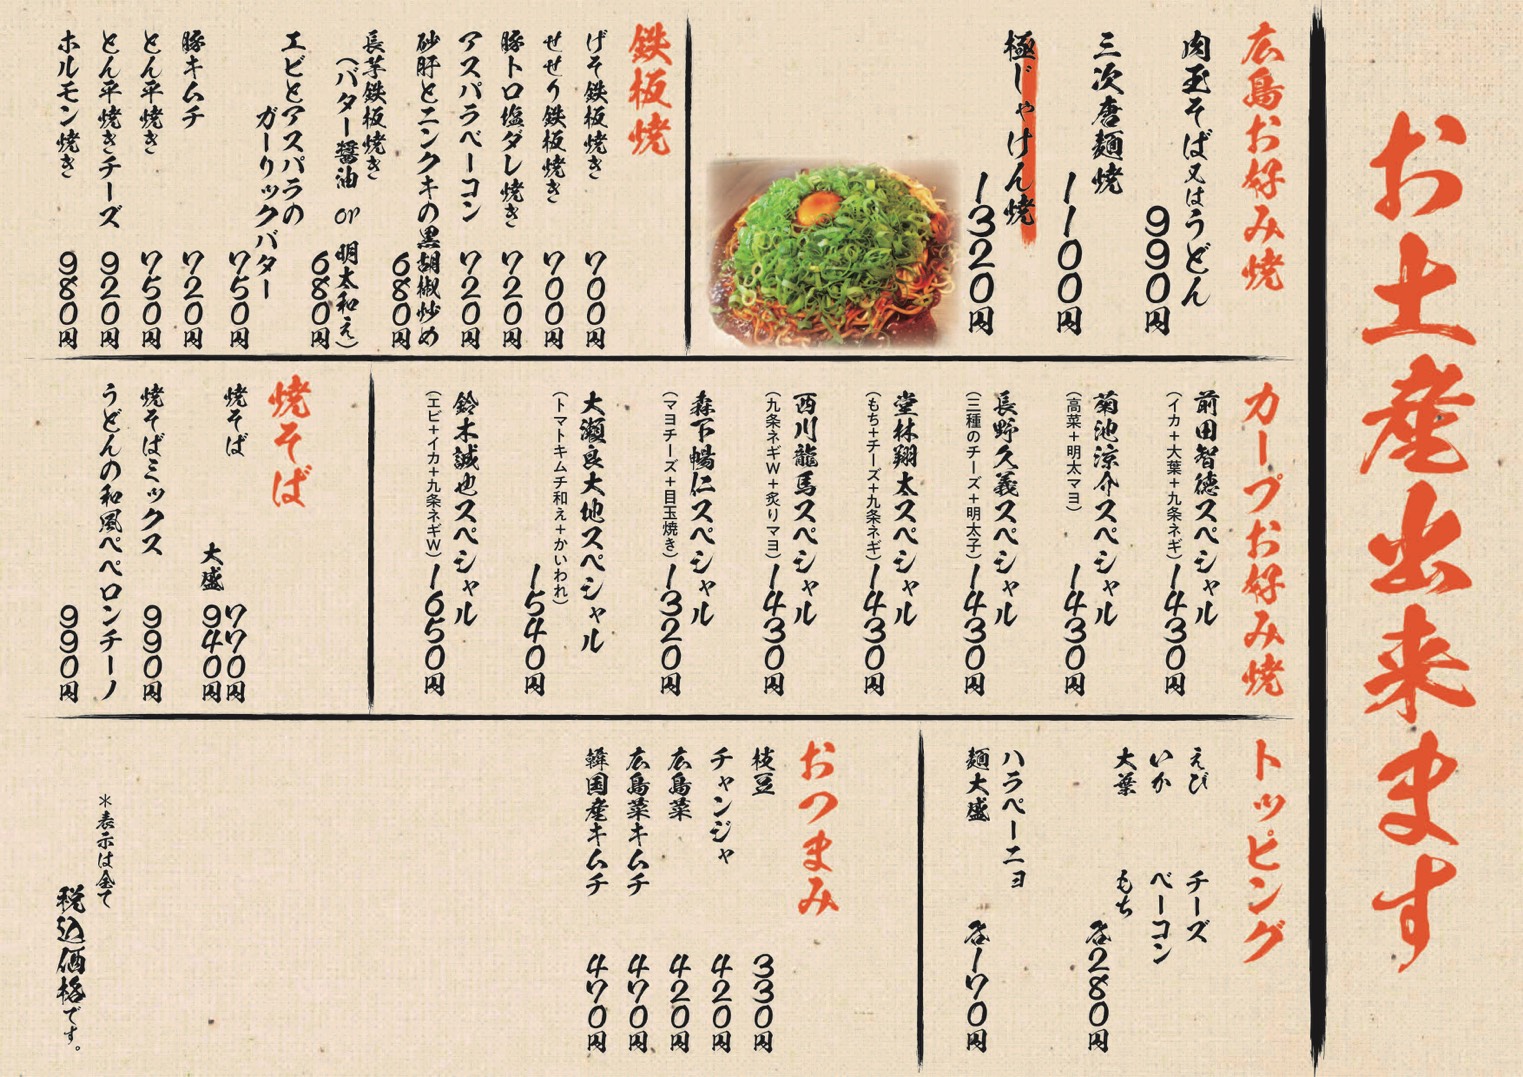 お土産出来ます
広島お好み焼
肉玉そば又はうどん
990円
三次唐麺焼
1100円
極じゃけん焼
1320円
鉄板焼
げそ鉄板焼き 700円
せせり鉄板焼き 700円
豚トロ塩ダレ焼き 720円
アスパラベーコン 720円
砂肝とニンクキの黒胡椒炒め
680円
長芋鉄板焼き
(バター醤油 or 明太和え)
680円
エビとアスパラの
ガーリックバター
750円
豚キムチ 720円
とん平焼き 750円
とん平焼きチーズ 920円
ホルモン焼き 980円
カープお好み焼
前田智徳スペシャル
(イカ+大葉+九条ネギ) 1430円
菊池涼介スペシャル
(高菜+明太マヨ) 1430円
長野久義スペシャル
(三種のチーズ+明太子) 1430円
堂林翔太スペシャル
(もち+チーズ+九条ネギ) 1430円
西川龍馬スペシャル
(九条ネギW+炙りマヨ) 1430円
森下暢仁スペシャル
(マヨチーズ+目玉焼き) 1320円
大瀬良大地スペシャル
(トマトキムチ和え+かいわれ)
1540円
鈴木誠也スペシャル
(エビ+イカ+九条ネギW) 1650円
焼そば
焼そば 770円
大盛 940円
焼そばミックス 990円
うどんの和風ペペロンチーノ
990円
トッピング
えび チーズ
いか ベーコン
大葉 もち
各280円
ハラペーニョ
麺大盛 各170円
おつまみ
枝豆 330円
チャンジャ 420円
広島菜 420円
広島菜キムチ 470円
韓国産キムチ 470円
*表示は全て
税込価格です。